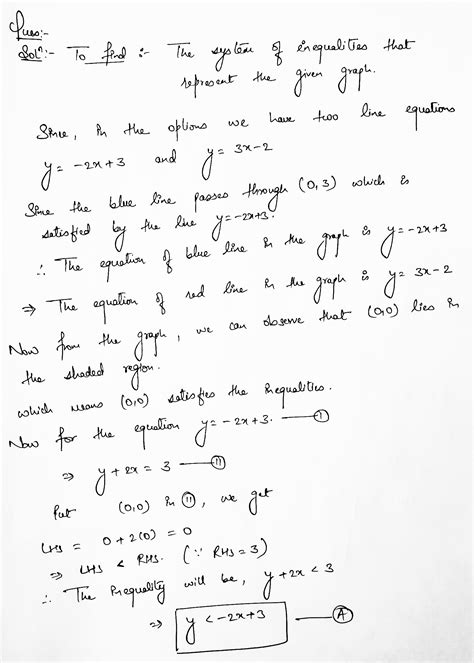 Ques:-
Solⁿ:- To find :- The system of inequalities that
represent the given graph.
Since, in the options we have two line equations
y = -2x+3 and y = 3x-2
Since the blue line passes through (0,3) which is
satisfied by the line y=-2x+3.
∴ The equation of blue line in the graph is y=-2x+3
⇒ The equation of red line in the graph is y= 3x-2
Now from the graph, we can observe that (0,0) lies in
the shaded region.
which means (0,0) satisfies the inequalities.
Now for the equation y=-2x+3. — Ⓘ
⇒ y+2x = 3 — Ⓘⓘ
Put (0,0) in Ⓘⓘ, we get
LHS = 0+2(0) = 0
⇒ LHS < RHS. (∵ RHS=3)
∴ The inequality will be, y+2x < 3
⇒ y <-2x+3 — Ⓐ